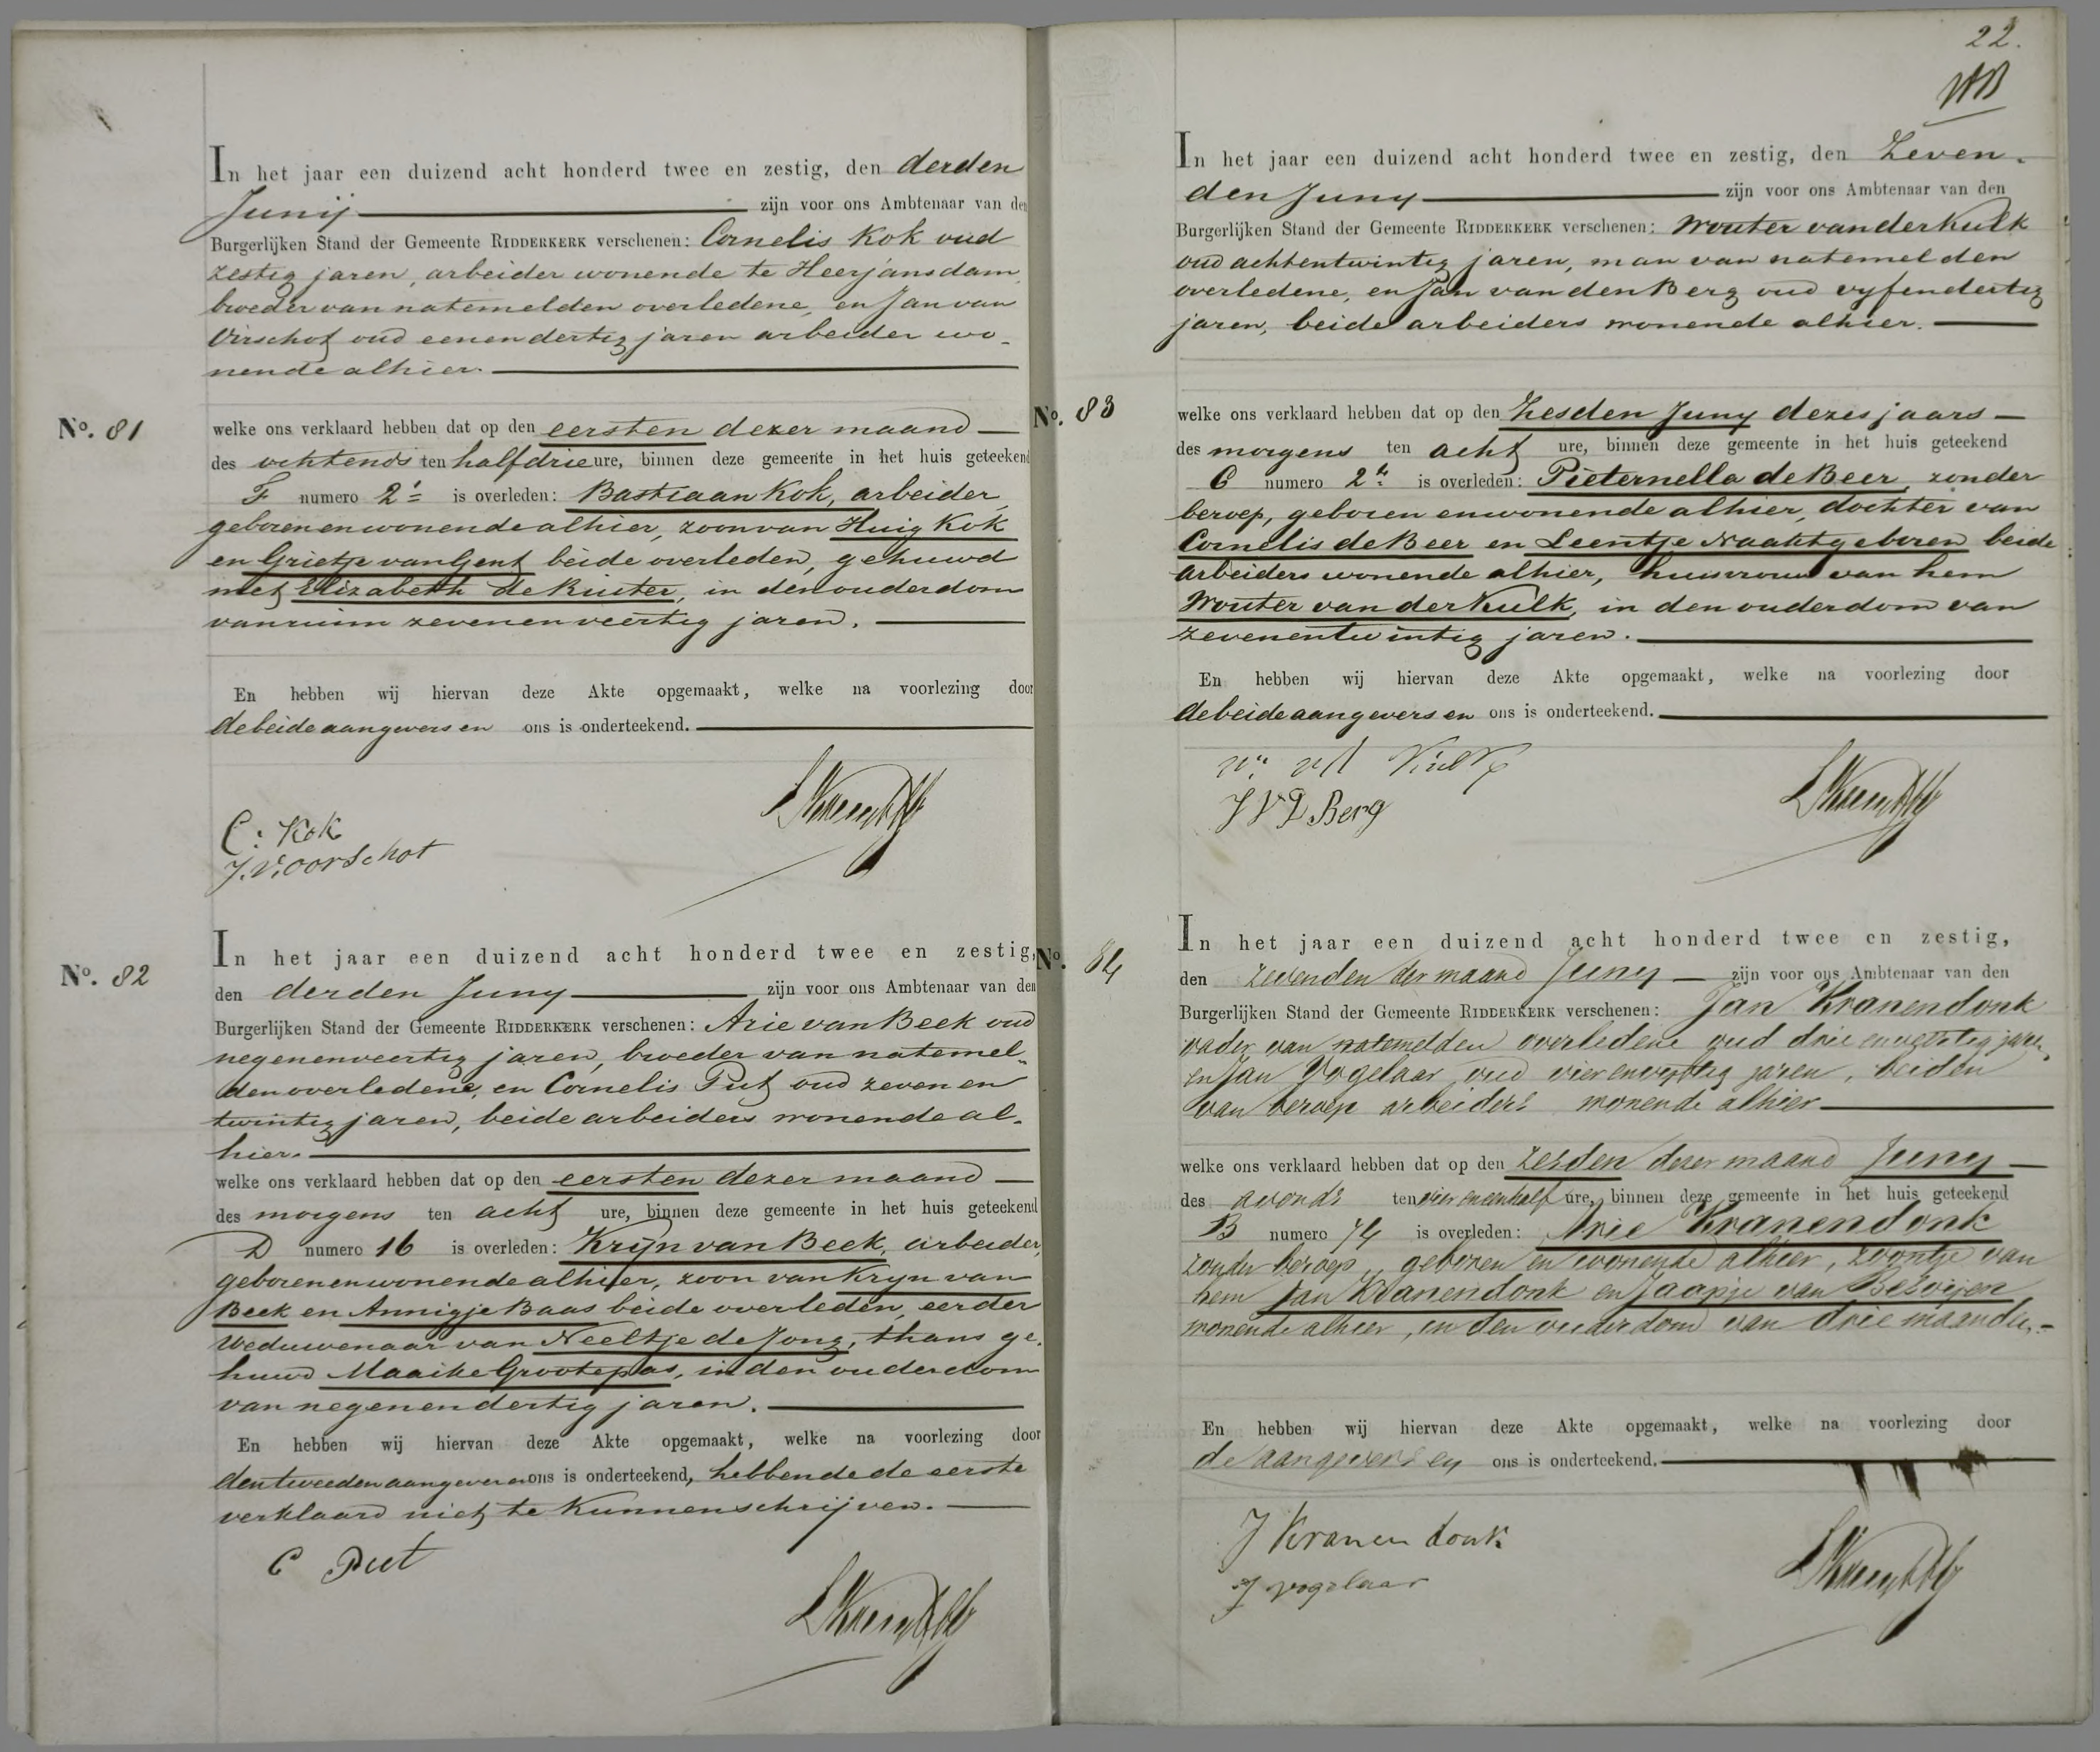 In het jaar een duizend acht honderd twee en zestig, den derden
Junij zijn voor ons Ambtenaar van den
Burgerlijken Stand der Gemeente RIDDERKERK verschenen: Cornelis Kok oud
zestig jaren, arbeider wonende te Heerjansdam,
broeder van natemelden overledene, en Jan van
Oirschot oud eenendertig jaren arbeider wo-
nende alhier.
No. 81
welke ons verklaard hebben dat op den eersten dezer maand
des ochtends ten halfdrie ure, binnen deze gemeente in het huis geteekend
F numero 2 is overleden: Bastiaan Kok, arbeider,
geboren en wonende alhier, zoon van Huig Kok
en Grietje van Gent beide overleden, gehuwd
met Elizabeth de Ruiter, in den ouderdom
van ruim zevenenveertig jaren.
En hebben wij hiervan deze Akte opgemaakt, welke na voorlezing door
de beide aangevers en ons is onderteekend.
C: Kok
J. V. oorschot
No. 82
In het jaar een duizend acht honderd twee en zestig,
den derden Juny zijn voor ons Ambtenaar van den
Burgerlijken Stand der Gemeente RIDDERKERK verschenen: Arie van Beek oud
negenenveertig jaren, broeder van natemel-
den overledene, en Cornelis Put oud zeven en
twintig jaren, beide arbeiders wonende al-
hier.
welke ons verklaard hebben dat op den eersten dezer maand
des morgens ten acht ure, binnen deze gemeente in het huis geteekend
D numero 16 is overleden: Krijn van Beek, arbeider,
geboren en wonende alhier, zoon van Kryn van
Beek en Annigje Baas beide overleden, eerder
Weduwenaar van Neeltje de Jong, thans ge-
huwd Maaike Grootepas, in den ouderdom
van negenendertig jaren.
En hebben wij hiervan deze Akte opgemaakt, welke na voorlezing door
den tweeden aangever en ons is onderteekend, hebbende de eerste
verklaard niet te kunnen schrijven.
C Put
22.
In het jaar een duizend acht honderd twee en zestig, den Zeven-
den Juny zijn voor ons Ambtenaar van den
Burgerlijken Stand der Gemeente RIDDERKERK verschenen: Wouter van der Kulk
oud achtentwintig jaren, man van natemelden
overledene, en Jan van den Berg oud vyfendertig
jaren, beide arbeiders wonende alhier.
No. 83
welke ons verklaard hebben dat op den Zesden Juny dezes jaars
des morgens ten acht ure, binnen deze gemeente in het huis geteekend
C numero 2 is overleden: Pieternella de Beer, zonder
beroep, geboren en wonende alhier, dochter van
Cornelis de Beer en Leentje Naaktgeboren beide
arbeiders wonende alhier, huisvrouw van hem
Wouter van der Kulk, in den ouderdom van
zevenentwintig jaren.
En hebben wij hiervan deze Akte opgemaakt, welke na voorlezing door
de beide aangevers en ons is onderteekend.
W. vd Kulk
J V D Berg
No. 84
In het jaar een duizend acht honderd twee en zestig,
den zevenden der maand Juny zijn voor ons Ambtenaar van den
Burgerlijken Stand der Gemeente RIDDERKERK verschenen: Jan Kranendonk
vader van natemelden overledene oud drie en veertig jaren,
en Jan Vogelaar, oud vierenvyftig jaren, beiden
van beroep arbeiders wonende alhier
welke ons verklaard hebben dat op den zesden dezer maand Juny
des avonds ten vier en een half ure, binnen deze gemeente in het huis geteekend
B numero 74 is overleden: Arie Kranendonk
zonder beroep, geboren en wonende alhier, zoontje van
hem Jan Kranendonk en Jaapje van Beswijen
wonende alhier, in den ouderdom van drie maanden
En hebben wij hiervan deze Akte opgemaakt, welke na voorlezing door
de aangevers en ons is onderteekend.
J Kranen donk
J vogelaar